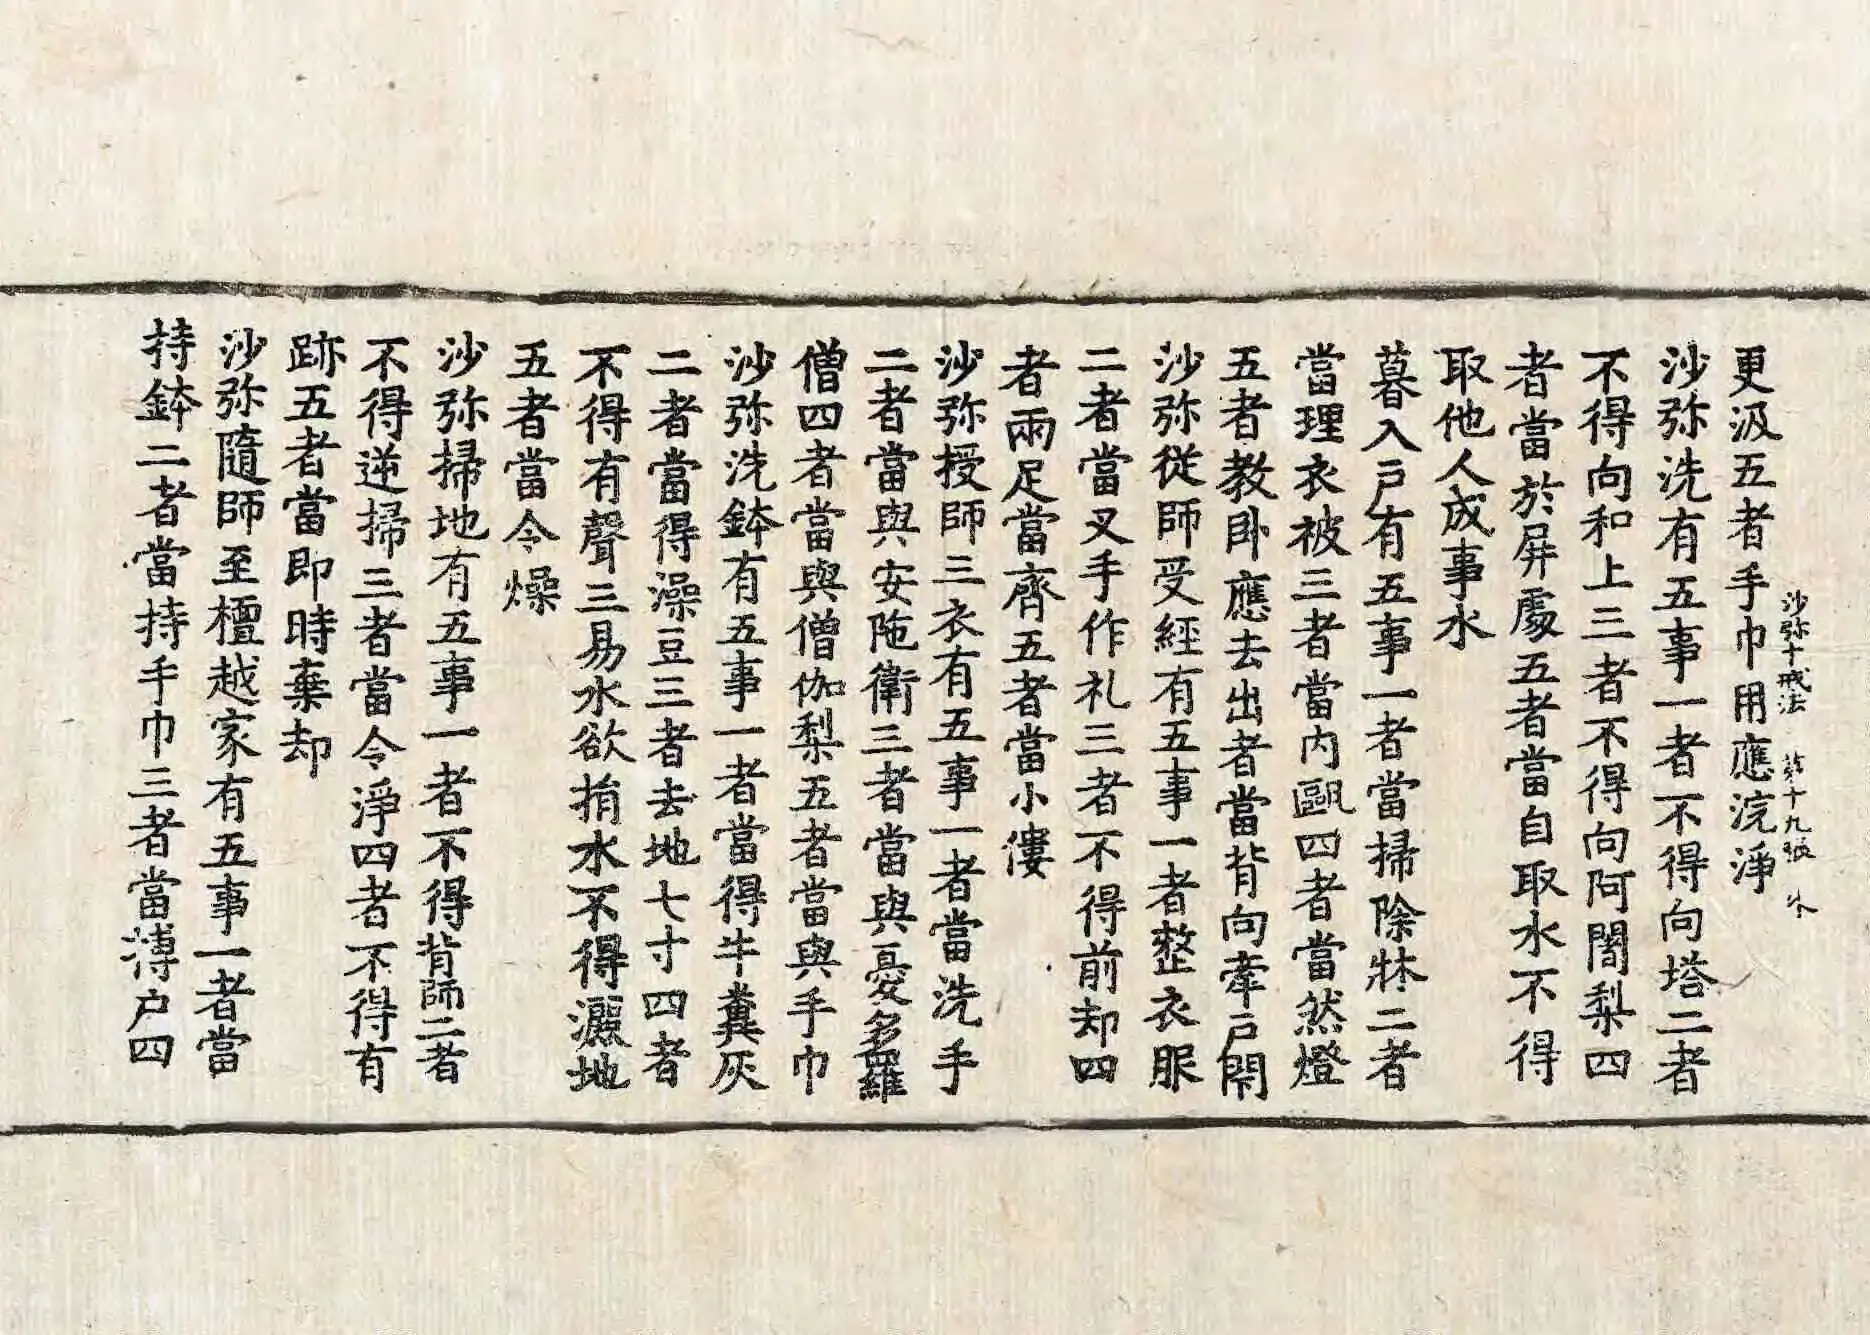 沙弥十戒法 第十九張 外
更汲五者手巾用應浣淨
沙弥洗有五事一者不得向塔二者
不得向和上三者不得向阿闍梨四
者當於屏處五者當自取水不得
取他人成事水
暮入戸有五事一者當掃除牀二者
當理衣被三者當內甌四者當然燈
五者教卧應去出者當背向牽戸閇
沙弥從師受經有五事一者整衣服
二者當叉手作礼三者不得前却四
者兩足當齊五者當小僂
沙弥授師三衣有五事一者當洗手
二者當與安陁衛三者當與憂多羅
僧四者當與僧伽梨五者當與手巾
沙弥洗鉢有五事一者當得牛糞灰
二者當得澡豆三者去地七寸四者
不得有聲三易水欲捐水不得灑地
五者當令燥
沙弥掃地有五事一者不得背師二者
不得逆掃三者當令淨四者不得有
跡五者當即時棄却
沙弥隨師至檀越家有五事一者當
持鉢二者當持手巾三者當溥户四